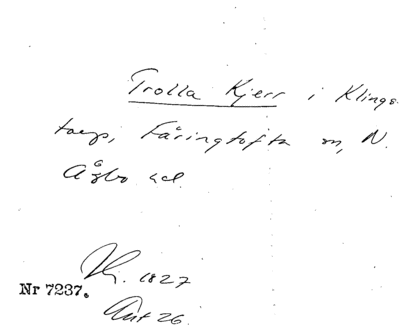 Trolla Kjerr i Klings-
torp, Färingtofta sn, N.
Åsbo hd.
1827
Nr 7237.
Ant 26